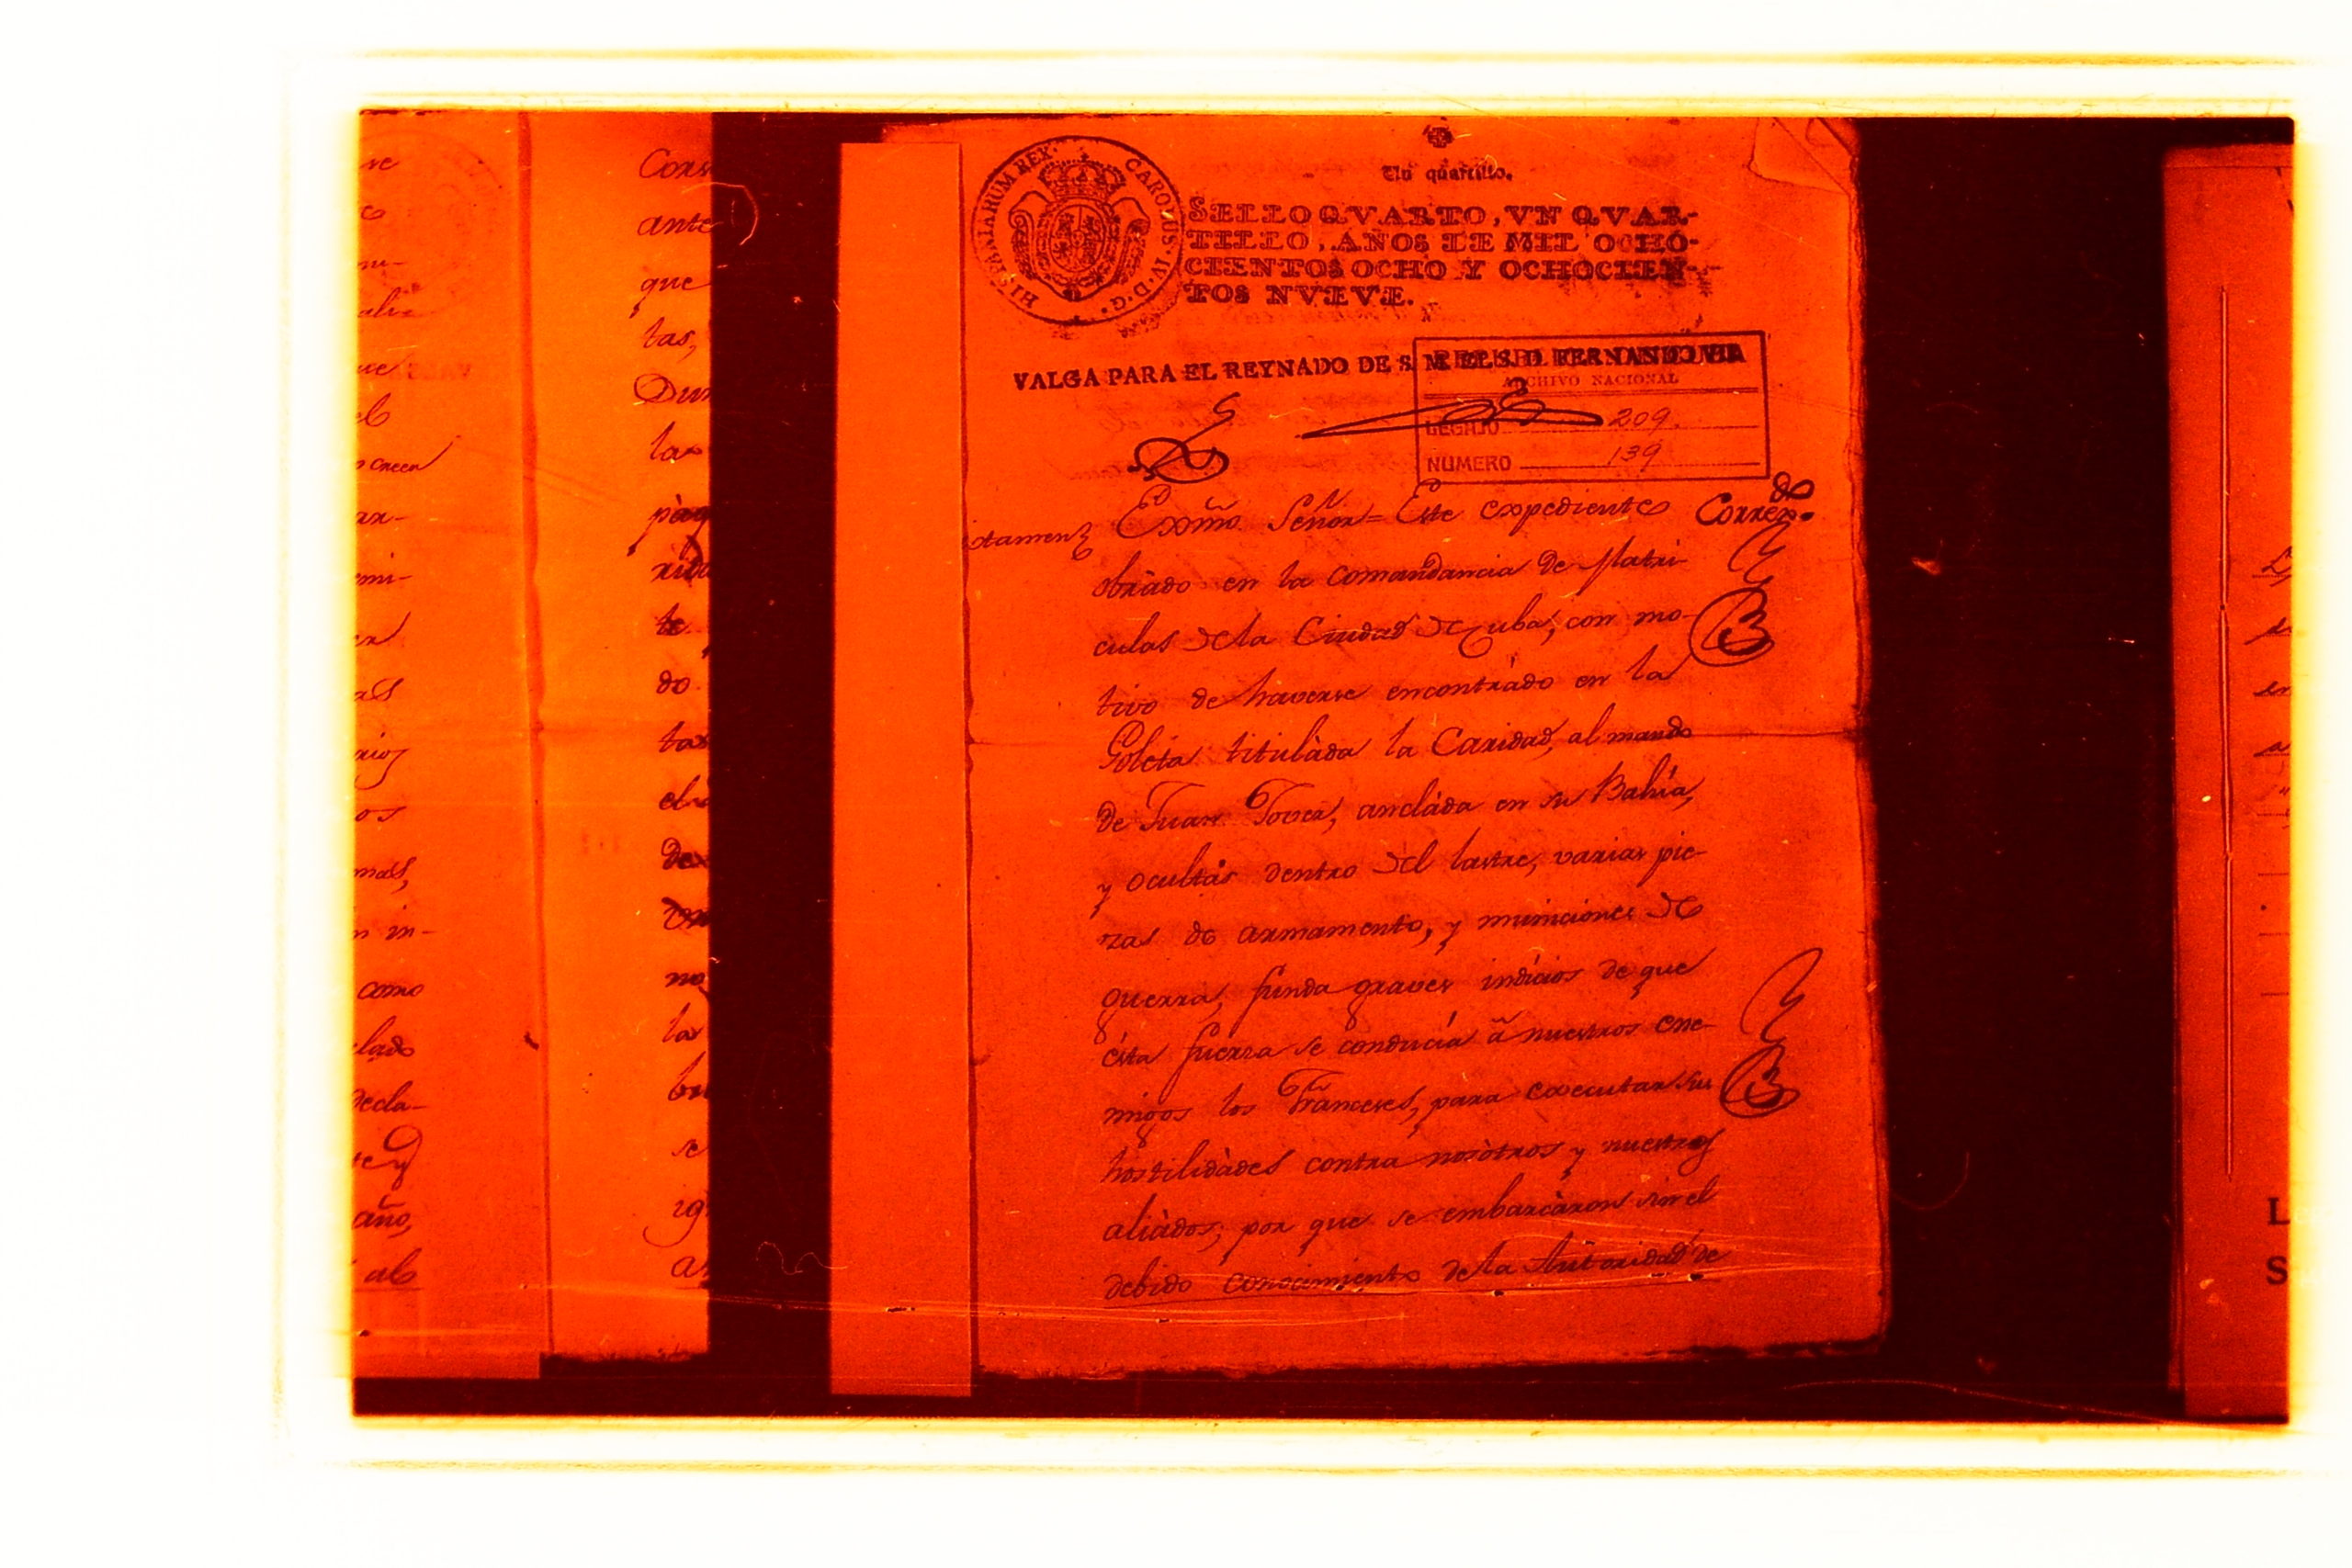 ne
Cors
ante
que
tas,
alu
Dun
las
n creer
ar-
emi-
te
do
as
tas
rios
os
de
mas,
n in-
no
como
la
clado
bu
decla-
se
año,
al
HISPANIARUM REX. CAROLUS. IV. D. G.
Un quartillo.
SELLO QVARTO, VN QVAR-
TILLO, AÑOS DE MIL OCHO-
CIENTOS OCHO Y OCHOCIEN-
TOS NVEVE.
VALGA PARA EL REYNADO DE S. M. EL S. D. FERNANDO VII.
ARCHIVO NACIONAL
LEGAJO 209.
NUMERO 139
Correxdo.
Exmo. Señor = Este expediente
obràdo en la comandancia de Matri-
culas de la Ciudad de Cuba, con mo-
tivo de haverse encontràdo en la
Goleta titulàda la Caridad, al mando
de Juan Tover, anclàda en su Bahía,
y ocultàs dentro del lastre, varias pie-
zas de armamento, y municiones de
guerra, funda graves indícios de que
ésta fuerza se conducía à nuestros ene-
migos los Franceses, para executar sus
hostilidàdes contra nosòtros y nuestros
aliàdos; por que se embarcàron sin el
debido conocimiento de la Autoridad de
L
S